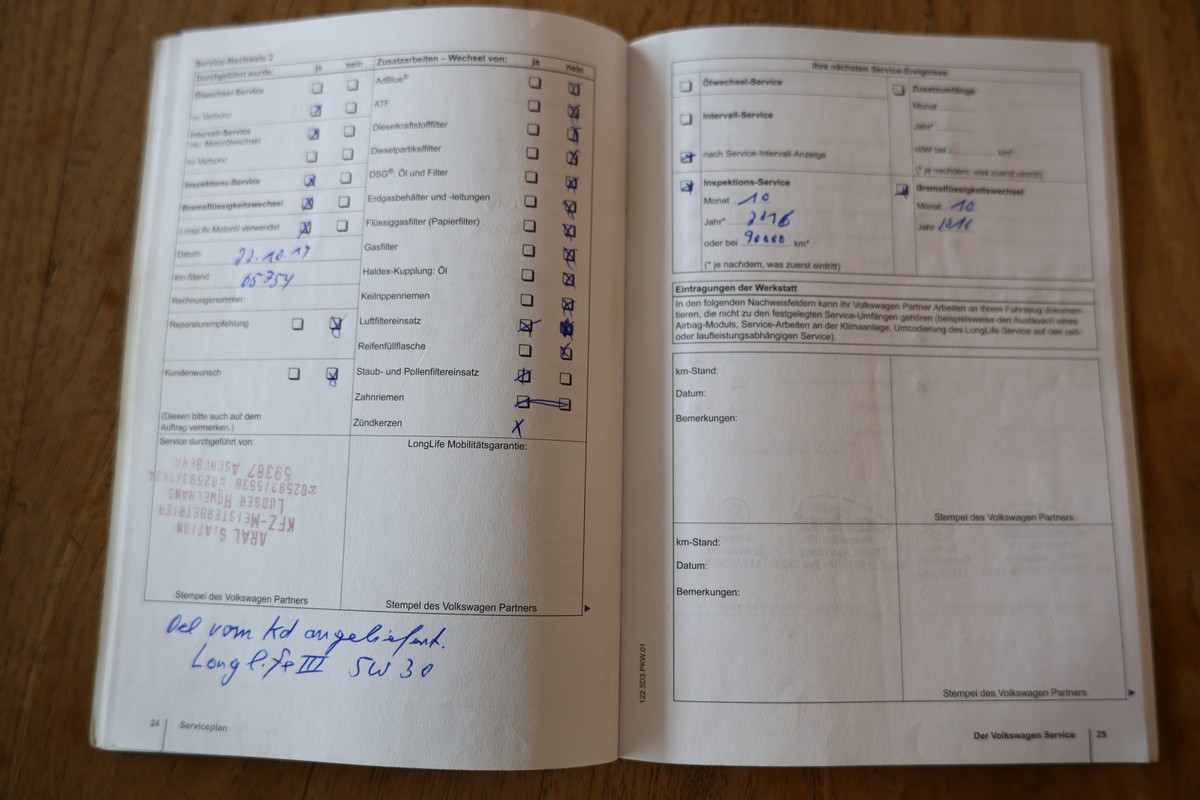 Service-Nachweis 2
Durchgeführt wurde: ja nein
Ölwechsel-Service
im Verbund
Intervall-Service
inkl. Motorölwechsel
im Verbund
Inspektions-Service
Bremsflüssigkeitswechsel
LongLife Motoröl verwendet
Datum: 22.10.14
km-Stand: 65354
Rechnungsnummer:
Reparaturempfehlung
Kundenwunsch
(Diesen bitte auch auf dem
Auftrag vermerken.)
Zusatzarbeiten – Wechsel von: ja nein
AdBlue®
ATF
Dieselkraftstofffilter
Dieselpartikelfilter
DSG®: Öl und Filter
Erdgasbehälter und -leitungen
Flüssiggasfilter (Papierfilter)
Gasfilter
Haldex-Kupplung: Öl
Keilrippenriemen
Luftfiltereinsatz
Reifenfüllflasche
Staub- und Pollenfiltereinsatz
Zahnriemen
Zündkerzen X
Service durchgeführt von:
ARAL STATION
KFZ-MEISTERBETRIEB
LUDGER
59387 ASCHEBERG
Stempel des Volkswagen Partners
LongLife Mobilitätsgarantie:
Stempel des Volkswagen Partners
Oel vom Kd angeliefert.
Longlife III 5W30
24 Serviceplan
Ihre nächsten Service-Ereignisse
Ölwechsel-Service
Intervall-Service
nach Service-Intervall-Anzeige
Inspektions-Service
Monat 10
Jahr* 2016
oder bei 90000 km*
(* je nachdem, was zuerst eintritt)
Zusatzumfänge
Monat
Jahr*
oder bei km*
(* je nachdem, was zuerst eintritt)
Bremsflüssigkeitswechsel
Monat 10
Jahr 2016
Eintragungen der Werkstatt
In den folgenden Nachweisfeldern kann Ihr Volkswagen Partner Arbeiten an Ihrem Fahrzeug dokumen-
tieren, die nicht zu den festgelegten Service-Umfängen gehören (beispielsweise den Austausch eines
Airbag-Moduls, Service-Arbeiten an der Klimaanlage, Umcodierung des LongLife Service auf den zeit-
oder laufleistungsabhängigen Service).
km-Stand:
Datum:
Bemerkungen:
Stempel des Volkswagen Partners
km-Stand:
Datum:
Bemerkungen:
Stempel des Volkswagen Partners
122.5D3.PKW.01
Der Volkswagen Service 25